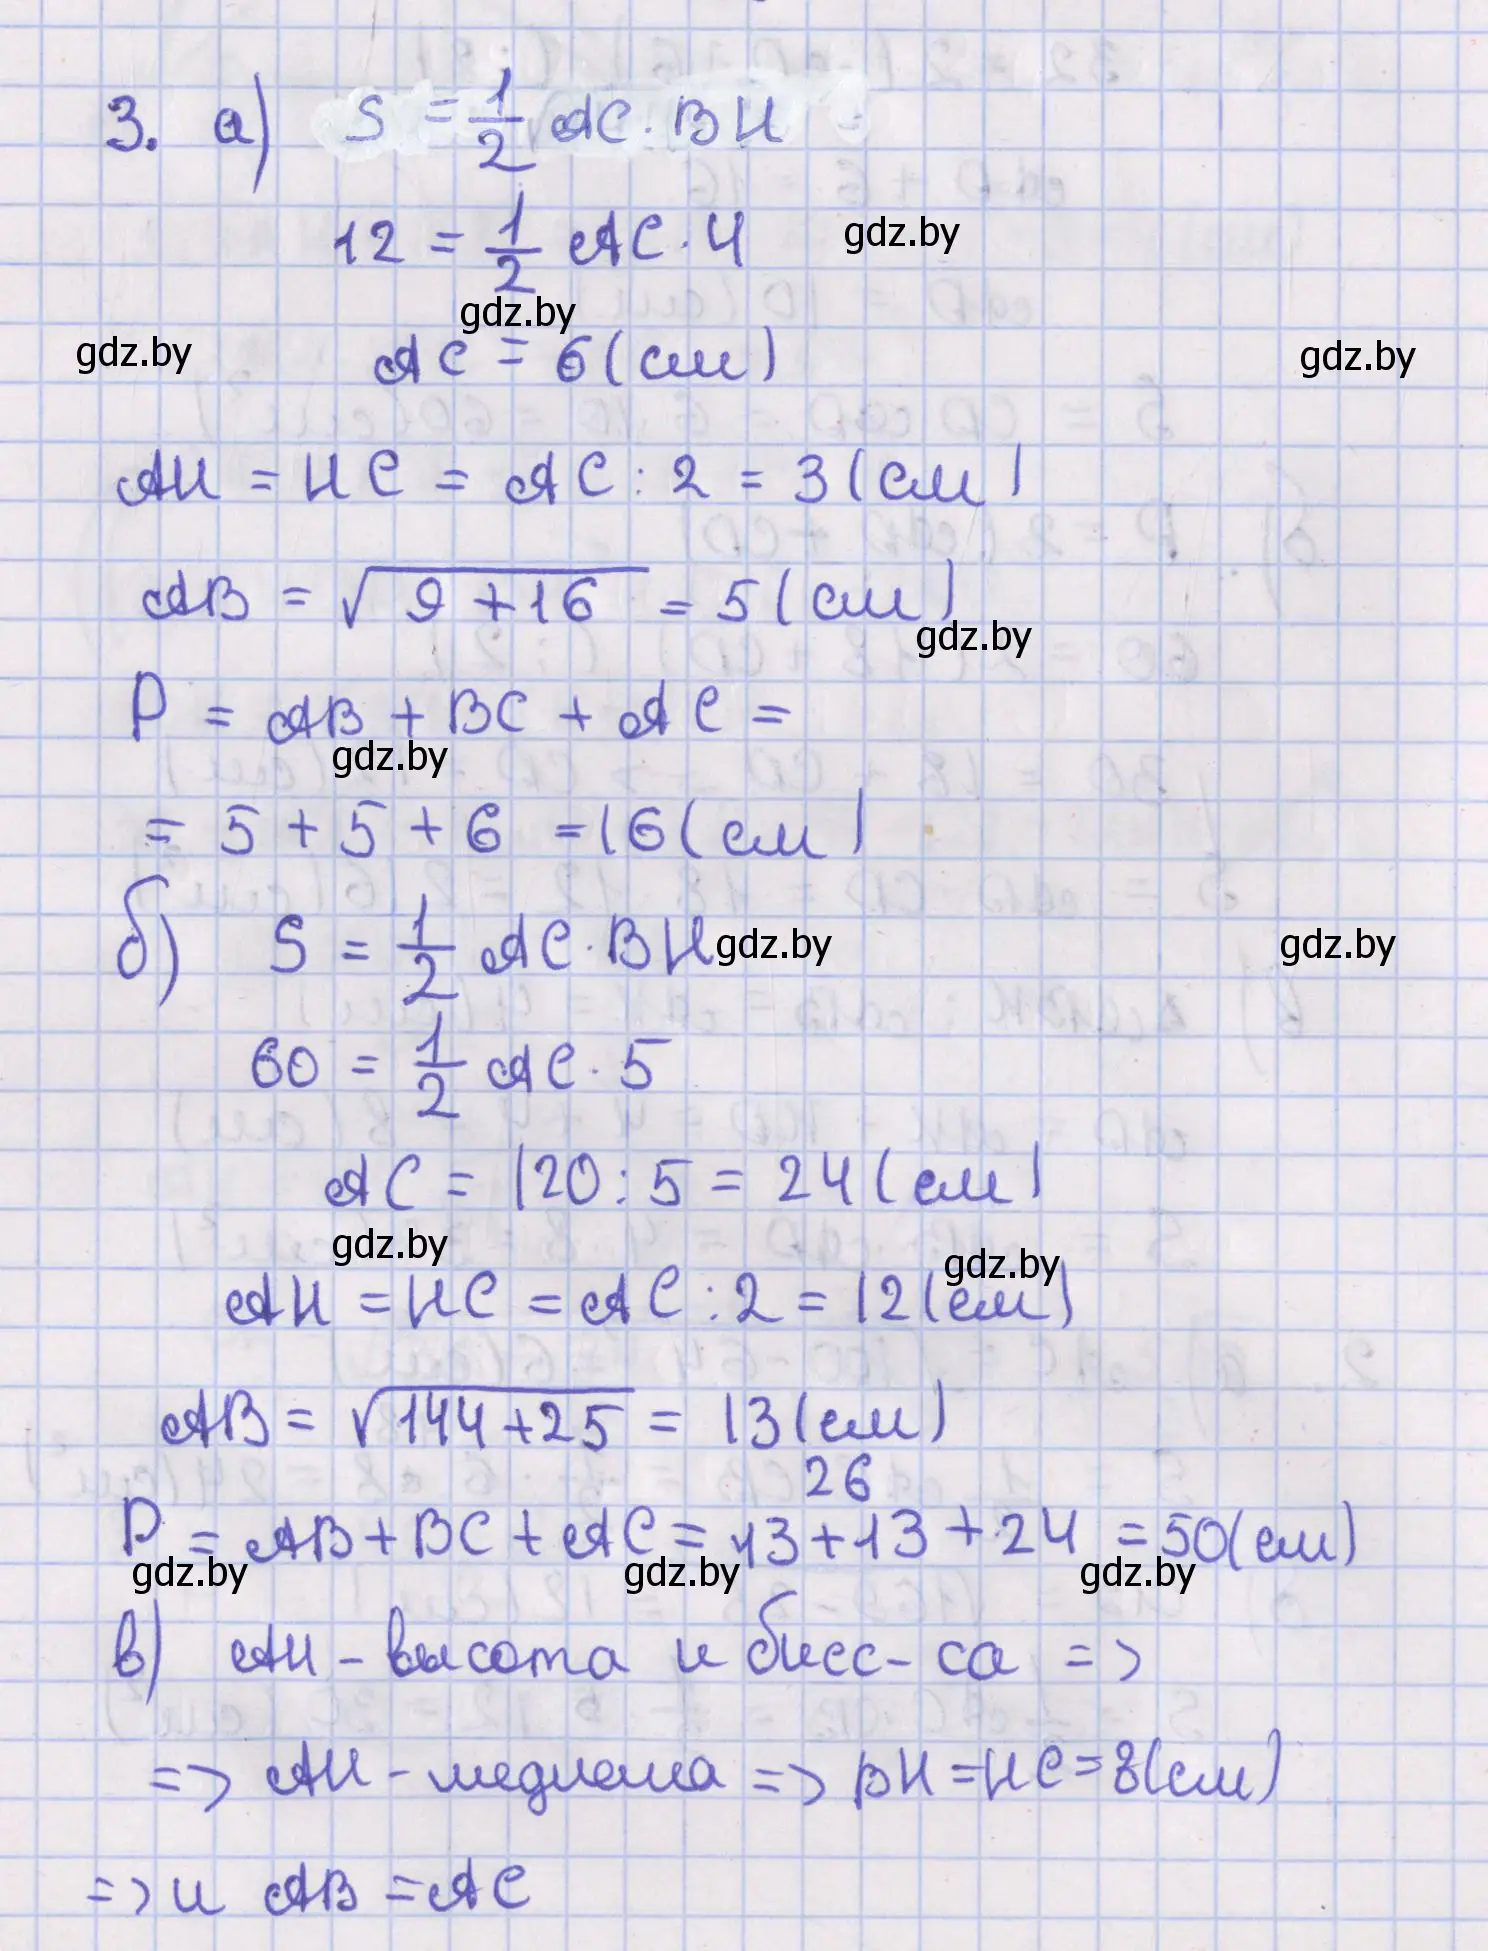 3. а) S = 1/2 AC · BH
12 = 1/2 AC · 4
gdz.by
gdz.by
gdz.by
gdz.by
AC = 6 (см)
AH = HC = AC : 2 = 3 (см)
AB = √9 + 16 = 5 (см)
gdz.by
P = AB + BC + AC =
gdz.by
= 5 + 5 + 6 = 16 (см)
б) S = 1/2 AC · BH
gdz.by
gdz.by
60 = 1/2 AC · 5
AC = 120 : 5 = 24 (см)
gdz.by
gdz.by
AH = HC = AC : 2 = 12 (см)
AB = √144 + 25 = 13 (см)
26
P = AB + BC + AC = 13 + 13 + 24 = 50 (см)
gdz.by
gdz.by
gdz.by
в) AH - высота и бисс-са =>
=> AH - медиана => BH = HC = 8 (см)
=> и AB = AC